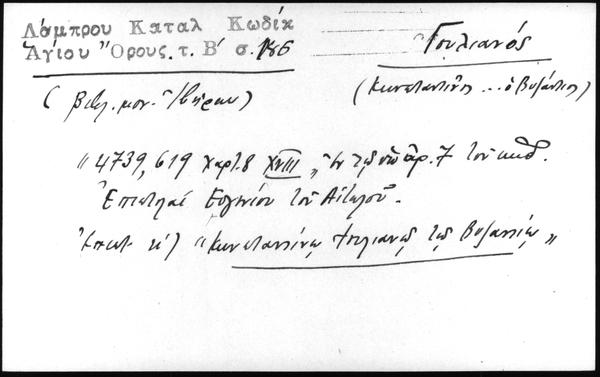 Λάμπρου Καταλ Κωδίκ
Ἁγίου Ὄρους. τ. Β' σ. 186
Ἰουλιανός
(βιβλ. μον. Ἰβήρων)
(Κωνσταντῖνος ... ὁ Βυζάντιος)
" 4739, 619 χαρτ. 8 XVIII, " Ἐν τῷ ὑπ' ἀρ. 7 τοῦ κωδ.
Ἐπιστολαί Εὐγενίου τοῦ Αἰτωλοῦ.
Ἐπιστ. "Κωνσταντίνῳ Ἰουλιανῷ τῷ Βυζαντίῳ"